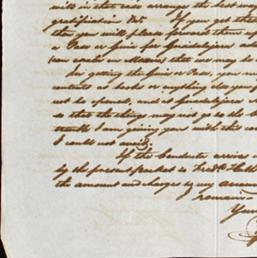 will in that case arrange the best way
gratification &c. If you get this
then you will please forward them up
a Pass or Guia for Guadalajara
(on costs or Mexico) that we may be
In getting the Guia or Pass, you may
contents as books or anything else you
not be opened, and at Guadalajara
so that the things may not go to the
trouble I am giving you with this
I could not avoid;
If the Conducta arrives
by the present Packet to Fredk. Huth
the amount and charges to my account
remain
Your